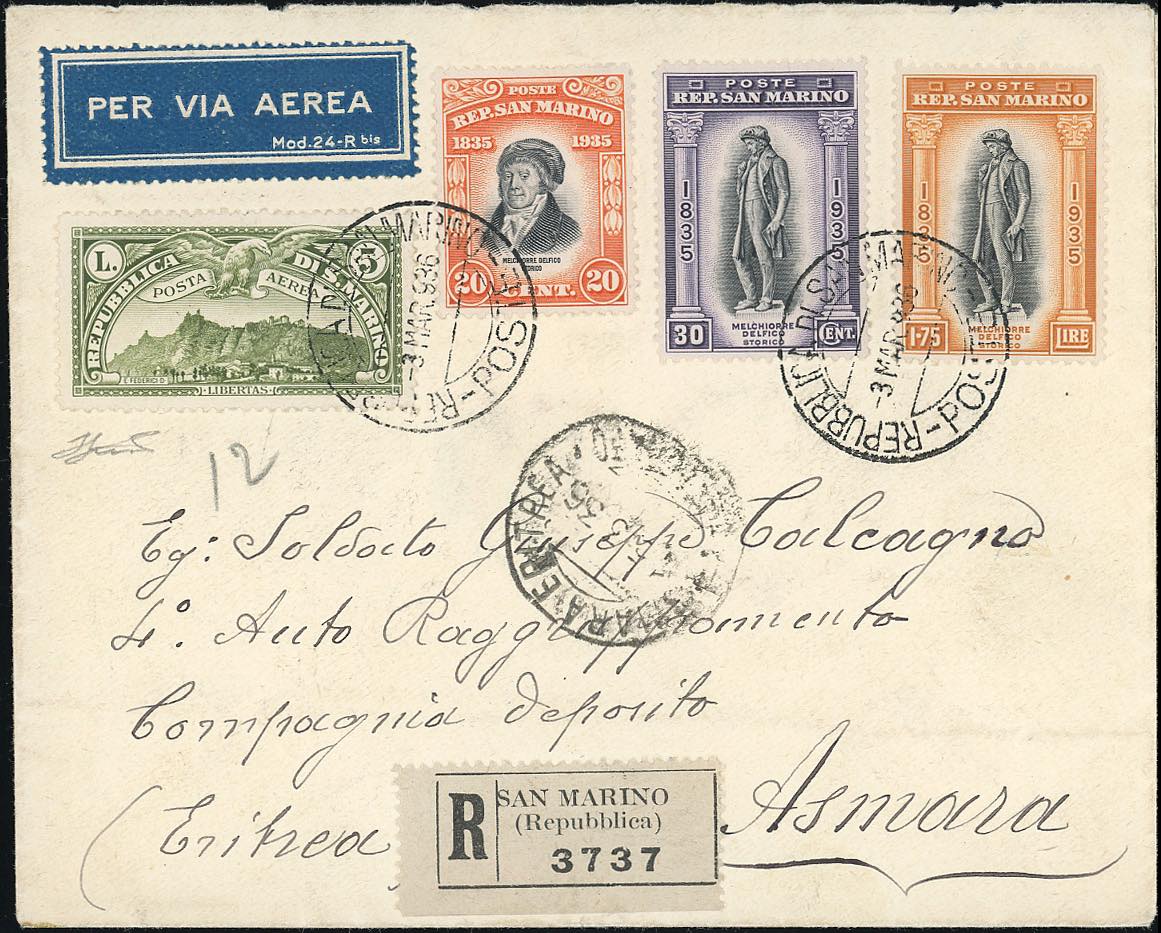 PER VIA AEREA
Mod.24-R bis
POSTE
REP. SAN MARINO
1835 1935
MELCHIORRE DELFICO
STORICO
20 CENT. 20
POSTE
REP. SAN MARINO
1835 1935
MELCHIORRE
DELFICO
STORICO
30 CENT.
POSTE
REP. SAN MARINO
1835 1935
MELCHIORRE
DELFICO
STORICO
1·75 LIRE
L. 5
REPUBBLICA DI S. MARINO
POSTA AEREA
E. FEDERICI D.
LIBERTAS
REPUBBLICA DI SAN MARINO - POSTE
-3 MAR. 936
REPUBBLICA DI SAN MARINO - POSTE
-3 MAR. 936
12
ASMARA ERITREA
Eg: Soldato Giuseppe Calcagno
4º. Auto Raggruppamento
Compagnia deposito
(Eritrea Asmara)
R
SAN MARINO
(Repubblica)
3737